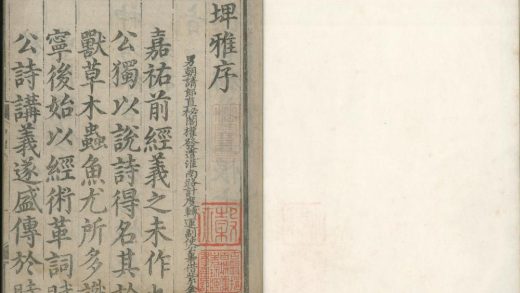 埤雅序
男朝請郎直秘閣權發遣淮南路計度轉運副使公事
嘉祐前經義之未作
公獨以說詩得名其於
獸草木蟲魚尤所多識
寧後始以經術革詞
公詩講義遂盛傳於時